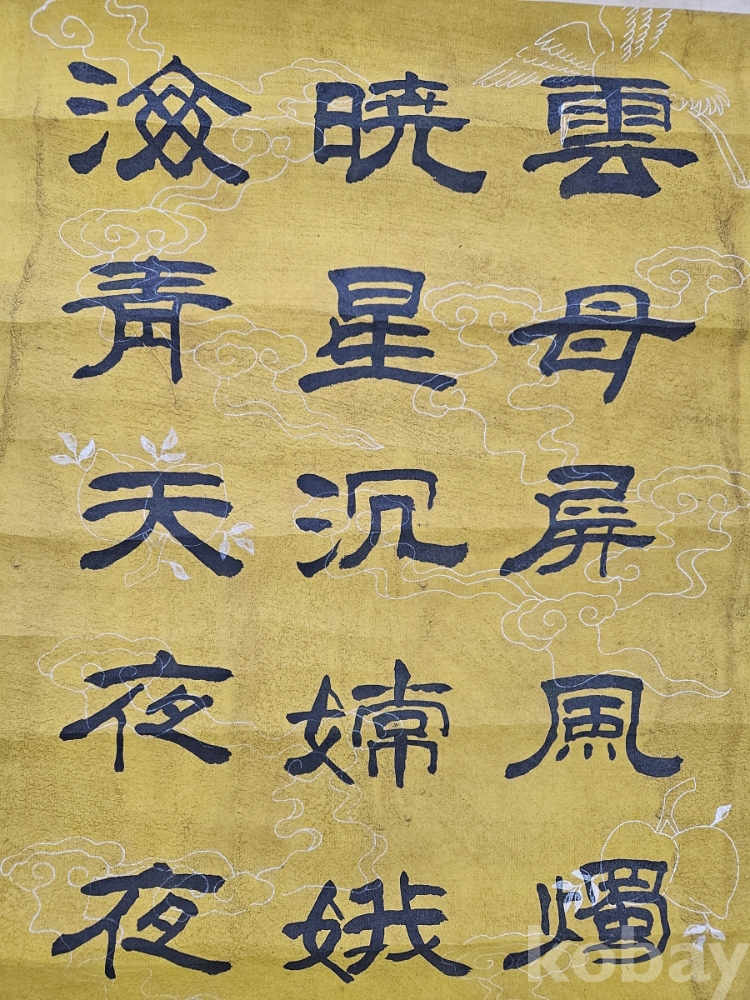 雲母屏風燭
暁星沉嫦娥
海青天夜夜
kobay